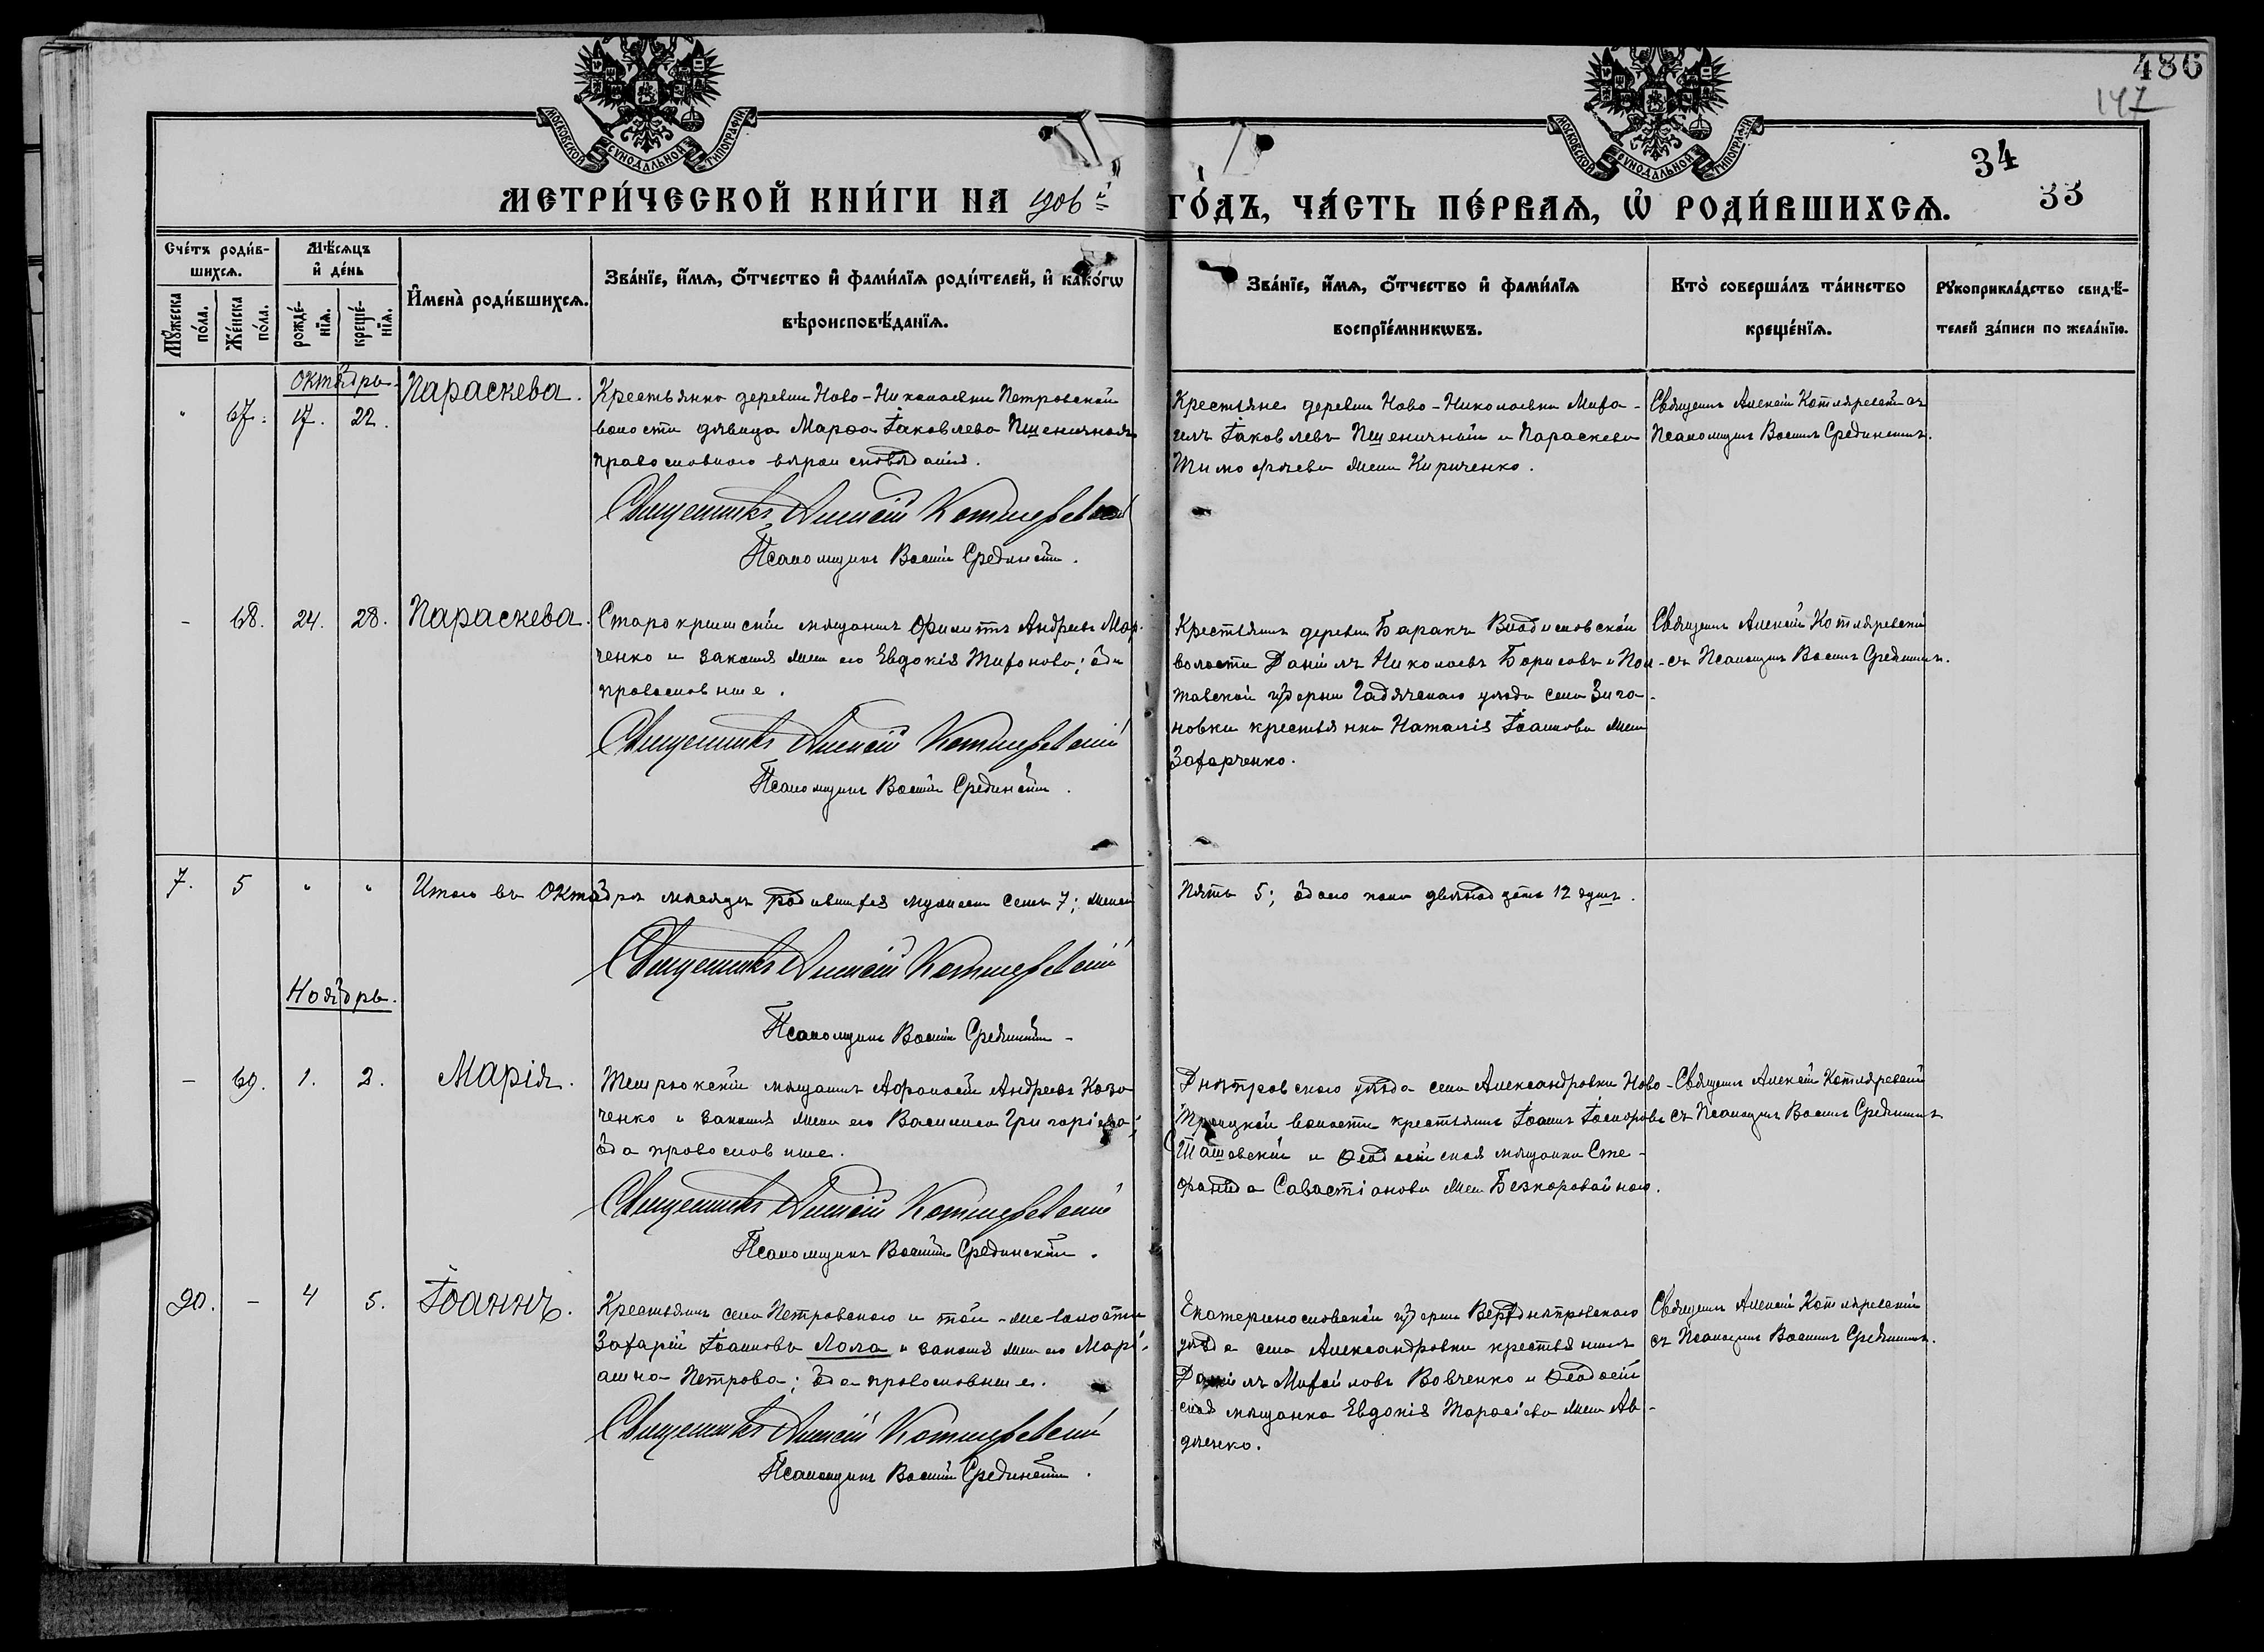 486
147
34
33
МОСКОВСКОЙ СѴНОДАЛЬНОЙ ТИПОГРАФІИ
МОСКОВСКОЙ СѴНОДАЛЬНОЙ ТИПОГРАФІИ
МЕТРИ́ЧЕСКОЙ КНИ́ГИ НА 1906 й
ГО́ДЪ, ЧА́СТЬ ПЕ́РВАѦ, Ѡ҆ РОДИ́ВШИХСѦ.
Сче́тъ роди́в-
шихсѧ.
Мꙋ́жеска по́ла.
Же́нска по́ла.
Мѣ́сѧцъ
и҆ де́нь
рожде́-нїѧ.
креще́-нїѧ.
И҆мена̀ роди́вшихсѧ.
Зва́нїе, и҆́мѧ, ѻ҆́тчество и҆ фами́лїѧ роди́телей, и҆ како́гѡ
вѣроисповѣ́данїѧ.
Зва́нїе, и҆́мѧ, ѻ҆́тчество и҆ фами́лїѧ
воспрїе́мникѡвъ.
Кто̀ соверша́лъ та́инство
креще́нїѧ.
Рꙋкоприкла́дство свидѣ́-
телей за́писи по жела́нїю.
Октябрь.
67. 17. 22. Параскева.
Крестьянка деревни Ново-Николаевки Петровской
волости дѣвица Марѳа Іаковлева Пшеничная
православнаго вѣроисповѣданія.
Священникъ Алексій Котляревскій
Псаломщикъ Василій Срединскій.
Крестьяне деревни Ново-Николаевки Миха-
илъ Іаковлевъ Пшеничный и Параскева
Тимофѣева жена Кириченко.
Священникъ Алексій Котляревскій съ
Псаломщик. Василіем Срединскимъ.
- 68. 24. 28. Параскева.
Старокрымскій мѣщанинъ Филиппъ Андреевъ Мар-
ченко и законная жена его Евдокія Тифонова; оба
православные.
Священникъ Алексій Котляревскій
Псаломщикъ Василій Срединскій.
Крестьянинъ деревни Баракъ Владиславской
волости Даніилъ Николаевъ Борисовъ и Пол-
тавской губерніи Гадячскаго уѣзда села
новки крестьянка Наталія Іоаннова жена
Захарченко.
Священникъ Алексій Котляревскій
съ Псаломщик. Василіем Срединскимъ.
7. 5 " "
Итого въ Октябрѣ мѣсяцѣ родившихся мужескаго семь 7; женскаго
Пять 5; обоего пола двѣнадцать 12 душъ.
Священникъ Алексій Котляревскій
Псаломщикъ Василій Срединскій
Ноябрь.
- 69. 1. 2. Марія.
Темрюкскій мѣщанинъ Аѳанасій Андреевъ Коза-
ченко и законная жена его Василиса Григоріева;
оба православные.
Священникъ Алексій Котляревскій
Псаломщикъ Василій Срединскій.
Днѣпровскаго уѣзда села Александровки Ново-
Троицкой волости крестьянинъ Іоаннъ Іосифовъ
и Ѳеодосійская мѣщанка Сте-
фанида Савастіанова жена Безкоровайнаго.
Священникъ Алексій Котляревскій
съ Псаломщик. Василіем Срединскимъ
90. - 4 5. Іоаннъ.
Крестьянинъ села Петровскаго и той-же волости
Захарій Іоанновъ Лола и законная жена его Марі-
анна Петрова; оба православные.
Священникъ Алексій Котляревскій
Псаломщикъ Василій Срединскій.
Екатеринославской губерніи Верхднѣпровскаго
уѣзда села Александровки крестьянинъ
Даніилъ Михаиловъ Вовченко и Ѳеодосій
ская мѣщанка Евдокія Тарасіева жена Ав-
дѣенко.
Священникъ Алексій Котляревскій
съ Псаломщик. Василіем Срединскимъ.